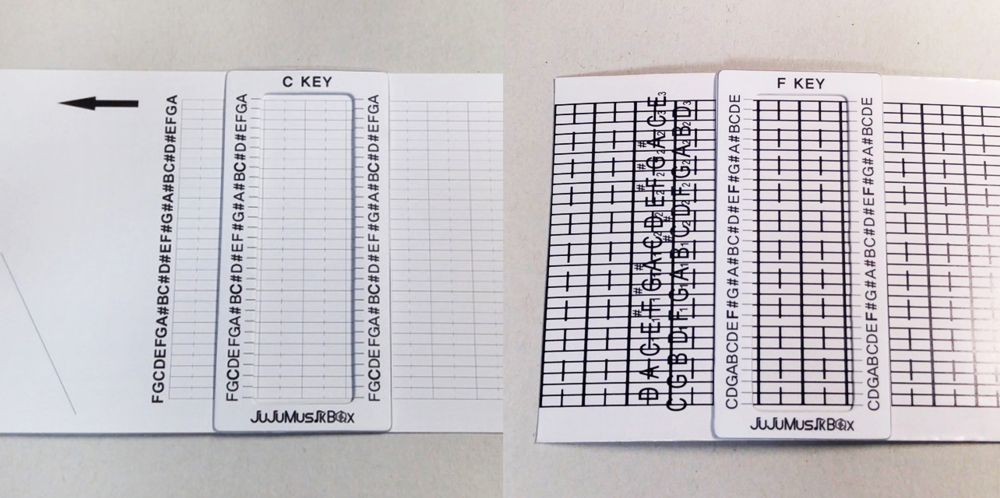 C KEY
FGCDEFGA#BC#D#EF#G#A#BC#D#EFGA
FGCDEFGA#BC#D#EF#G#A#BC#D#EFGA
FGCDEFGA#BC#D#EF#G#A#BC#D#EFGA
JuJuMusicBox
F KEY
CDGABCDEF#G#A#BC#D#EF#G#A#BCDE
CDGABCDEF#G#A#BC#D#EF#G#A#BCDE
JuJuMusicBox